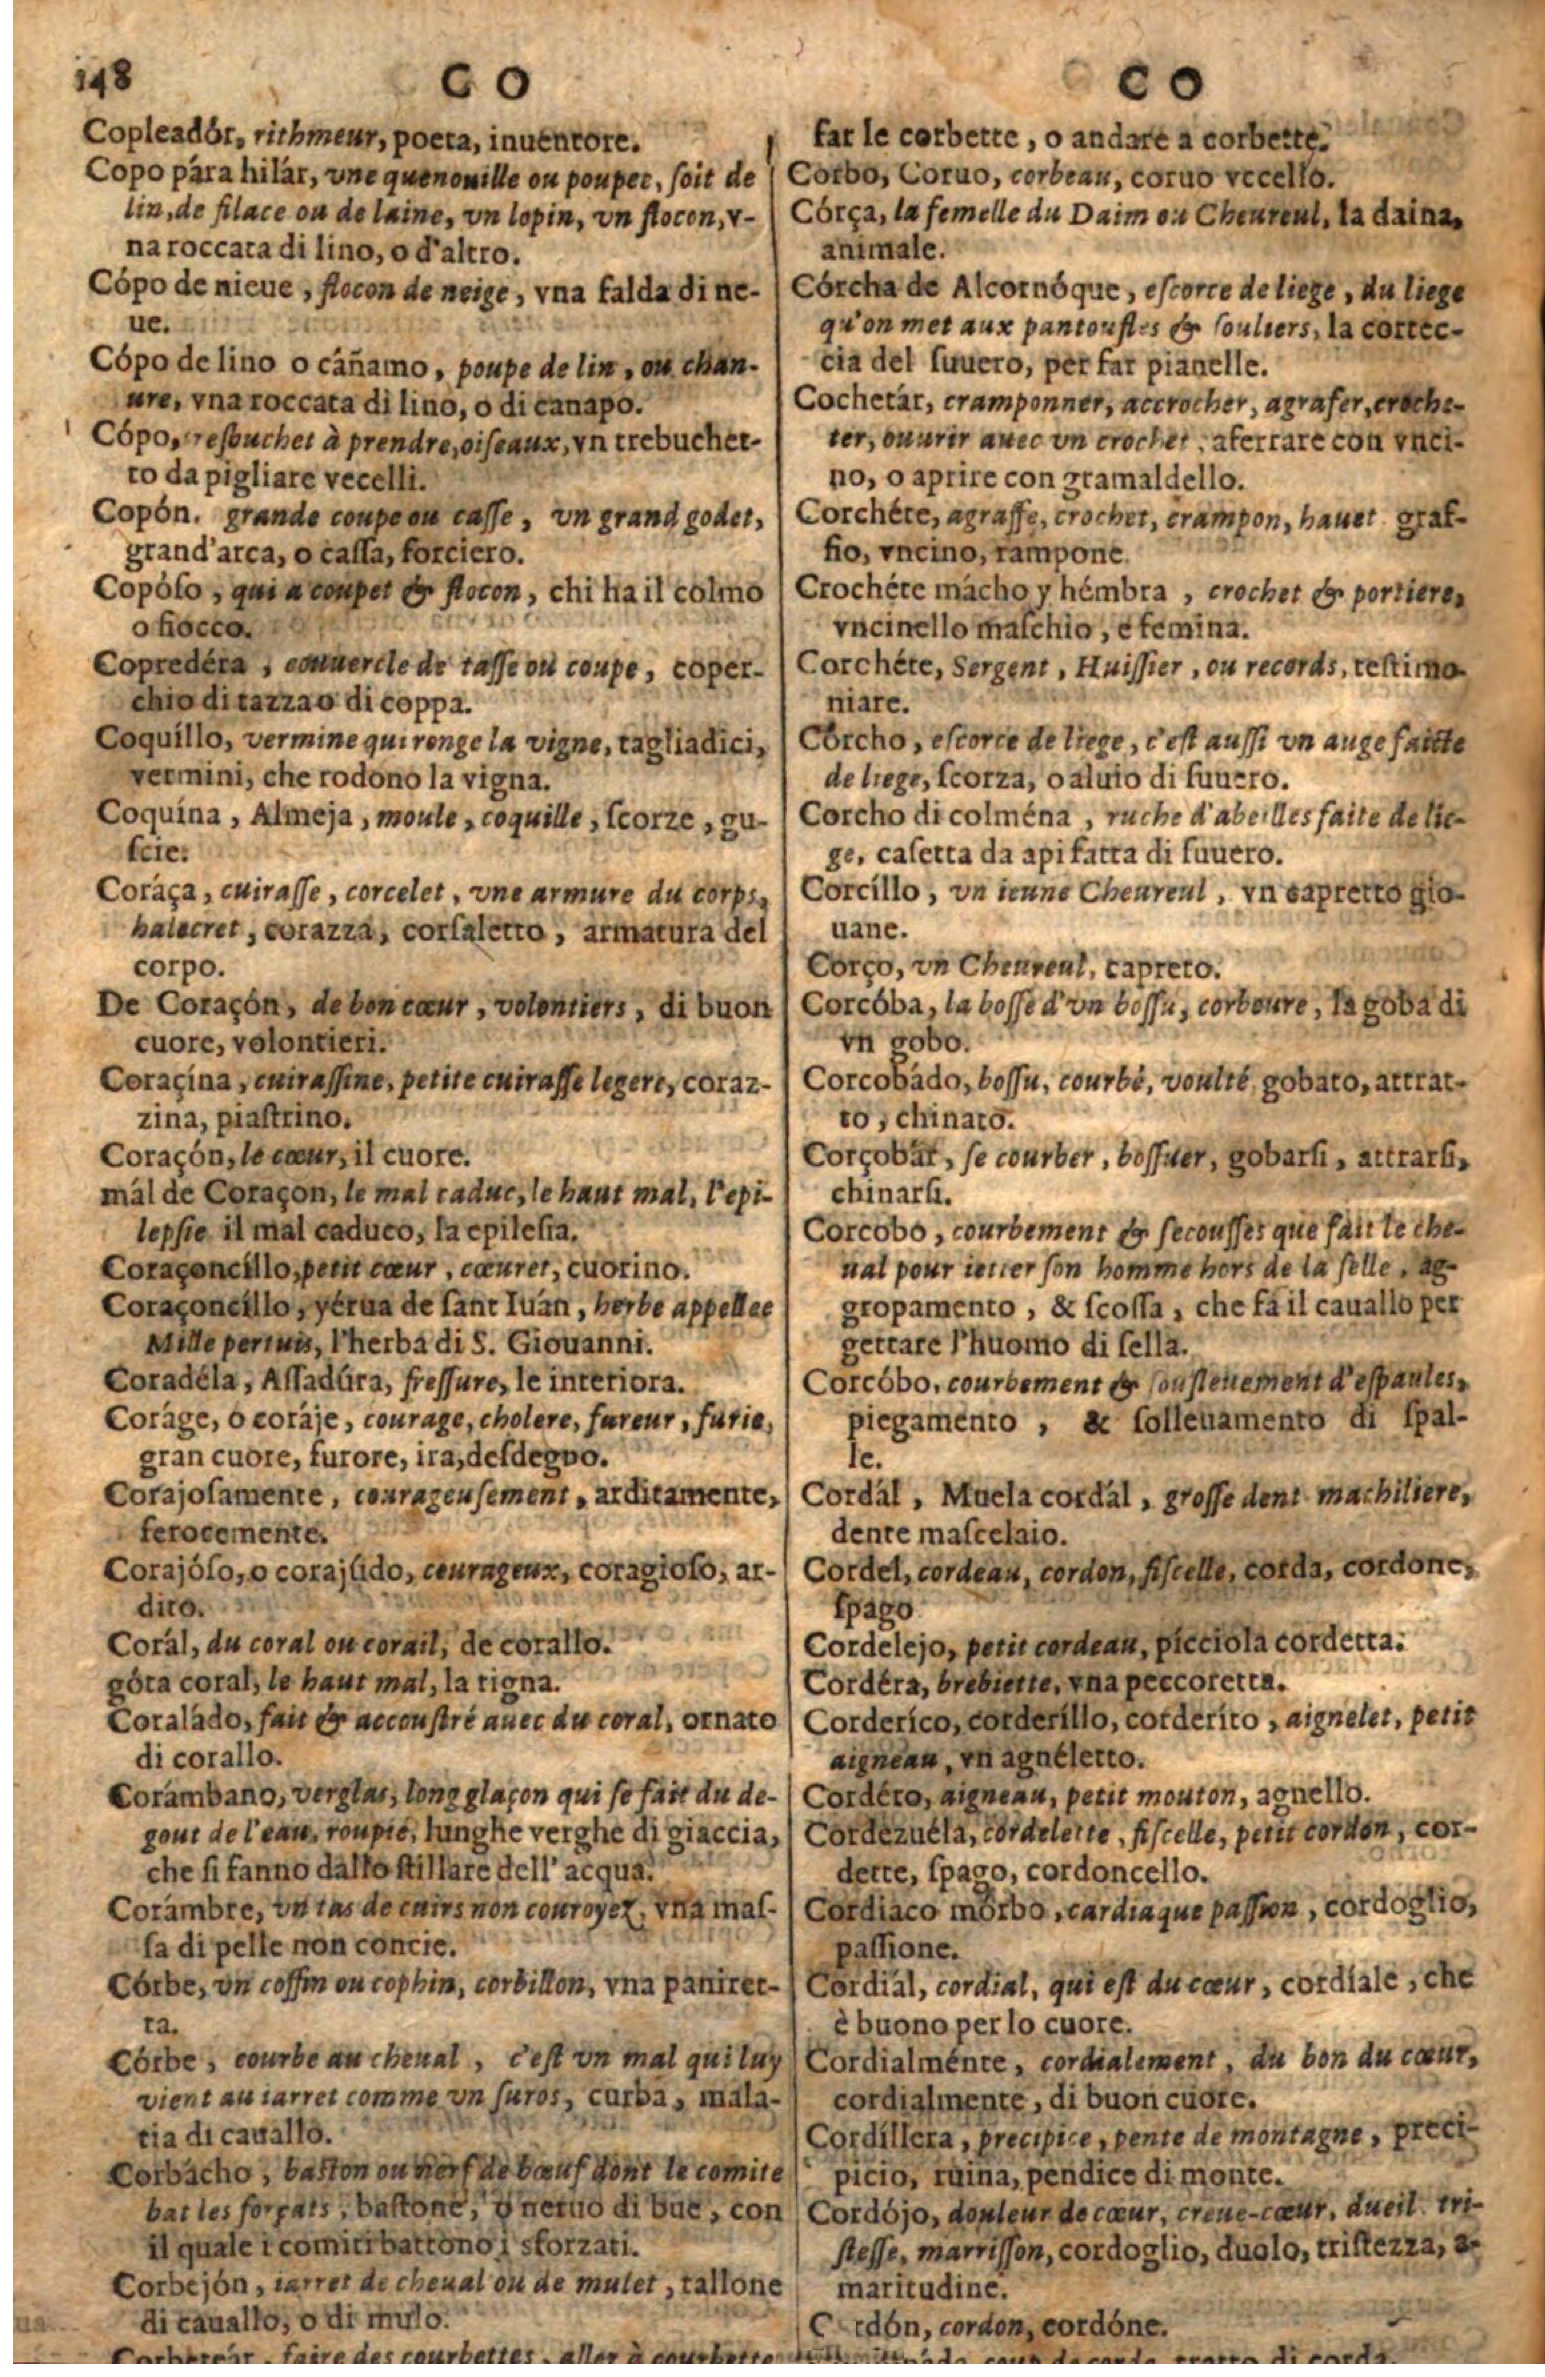 148 CO CO
Copleadór, rithmeur, poeta, inuentore.
Copo pára hilár, vne quenouille ou poupee, ſoit de
lin, de filace ou de laine, vn lopin, vn flocon, v-
na roccata di lino, o d'altro.
Cópo de nieue, flocon de neige, vna falda di ne-
ue.
Cópo de lino o cáñamo, poupe de lin, ou chan-
ure, vna roccata di lino, o di canapo.
Cópo, tresbuchet à prendre, oiſeaux, vn trebuchet-
to da pigliare vecelli.
Copón. grande coupe ou caſſe, vn grand godet,
grand'arca, o caſſa, forciero.
Copóſo, qui a coupet & flocon, chi ha il colmo
o fiocco.
Copredéra, couuercle de taſſe ou coupe, coper-
chio di tazza o di coppa.
Coquíllo, vermine qui ronge la vigne, tagliadici,
vermini, che rodono la vigna.
Coquína, Almeja, moule, coquille, ſcorze, gu-
ſcie.
Coráça, cuiraſſe, corcelet, vne armure du corps,
halecret, corazza, corſaletto, armatura del
corpo.
De Coraçón, de bon cœur, volontiers, di buon
cuore, volontieri.
Coraçína, cuiraſſine, petite cuiraſſe legere, coraz-
zina, piaſtrino.
Coraçón, le cœur, il cuore.
mál de Coraçon, le mal caduc, le haut mal, l'epi-
lepſie il mal caduco, la epileſia.
Coraçoncíllo, petit cœur, cœuret, cuorino.
Coraçoncíllo, yérua de ſant Iuán, herbe appellee
Mille pertuis, l'herba di S. Giouanni.
Coradéla, Aſſadúra, freſſure, le interiora.
Coráge, o coráje, courage, cholere, fureur, furie,
gran cuore, furore, ira, deſdegno.
Corajoſamente, courageuſement, arditamente,
ferocemente.
Corajóſo, o corajúdo, courageux, coragioſo, ar-
dito.
Corál, du coral ou corail, de corallo.
góta coral, le haut mal, la tigna.
Coraládo, fait & accouſtré auec du coral, ornato
di corallo.
Corámbano, verglas, long glaçon qui ſe fait du de-
gout de l'eau, roupie, lunghe verghe di giaccia,
che ſi fanno dallo ſtillare dell' acqua.
Corámbre, vn tas de cuirs non couroyez, vna maſ-
ſa di pelle non concie.
Córbe, vn coffin ou cophin, corbillon, vna paniret-
ta.
Córbe, courbe au cheual, c'eſt vn mal qui luy
vient au iarret comme vn ſuros, curba, mala-
tia di cauallo.
Corbácho, baſton ou nerf de bœuf dont le comite
bat les forçats, baſtone, o neruo di bue, con
il quale i comiti battono i sforzati.
Corbejón, iarret de cheual ou de mulet, tallone
di cauallo, o di mulo.
Corbeteár, faire des courbettes, aller à courbette
far le corbette, o andare a corbette.
Corbo, Coruo, corbeau, coruo vccello.
Córça, la femelle du Daim ou Cheureul, la daina,
animale.
Córcha de Alcornóque, eſcorce de liege, du liege
qu'on met aux pantoufles & ſouliers, la cortec-
cia del ſuuero, per far pianelle.
Cochetár, cramponner, accrocher, agrafer, croche-
ter, ouurir auec vn crochet, aferrare con vnci-
no, o aprire con gramaldello.
Corchéte, agraffe, crochet, crampon, hauet graf-
fio, vncino, rampone.
Crochéte mácho y hémbra, crochet & portiere,
vncinello maſchio, e femina.
Corchéte, Sergent, Huiſſier, ou records, teſtimo-
niare.
Córcho, eſcorce de liege, c'eſt auſſi vn auge faicte
de liege, ſcorza, o aluio di ſuuero.
Corcho di colména, ruche d'abeilles faite de lie-
ge, caſetta da api fatta di ſuuero.
Corcíllo, vn ieune Cheureul, vn capretto gio-
uane.
Corço, vn Cheureul, capreto.
Corcóba, la boſſe d'vn boſſu, corbeure, la goba di
vn gobo.
Corcobádo, boſſu, courbé, voulté gobato, attrat-
to, chinato.
Corçobár, ſe courber, boſſuer, gobarſi, attrarſi,
chinarſi.
Corcobo, courbement & ſecouſſes que fait le che-
ual pour ietter ſon homme hors de la ſelle, ag-
gropamento, & ſcoſſa, che fà il cauallo per
gettare l'huomo di ſella.
Corcóbo, courbement & ſouſleuement d'eſpaules,
piegamento, & ſolleuamento di ſpal-
le.
Cordál, Muela cordál, groſſe dent machiliere,
dente maſcelaio.
Cordel, cordeau, cordon, fiſcelle, corda, cordone,
ſpago
Cordelejo, petit cordeau, picciola cordetta.
Cordéra, brebiette, vna peccoretta.
Corderíco, corderíllo, corderíto, aignelet, petit
aigneau, vn agnéletto.
Cordéro, aigneau, petit mouton, agnello.
Cordezuéla, cordelette, fiſcelle, petit cordon, cor-
dette, ſpago, cordoncello.
Cordiaco mórbo, cardiaque paſſion, cordoglio,
paſſione.
Cordiál, cordial, qui eſt du cœur, cordiale, che
è buono per lo cuore.
Cordialménte, cordialement, du bon du cœur,
cordialmente, di buon cuore.
Cordíllera, precipice, pente de montagne, preci-
picio, ruina, pendice di monte.
Cordójo, douleur de cœur, creue-cœur, dueil tri-
ſteſſe, marriſſon, cordoglio, duolo, triſtezza, a-
maritudine.
C rdón, cordon, cordóne.
coup de corde, tratto di corda.